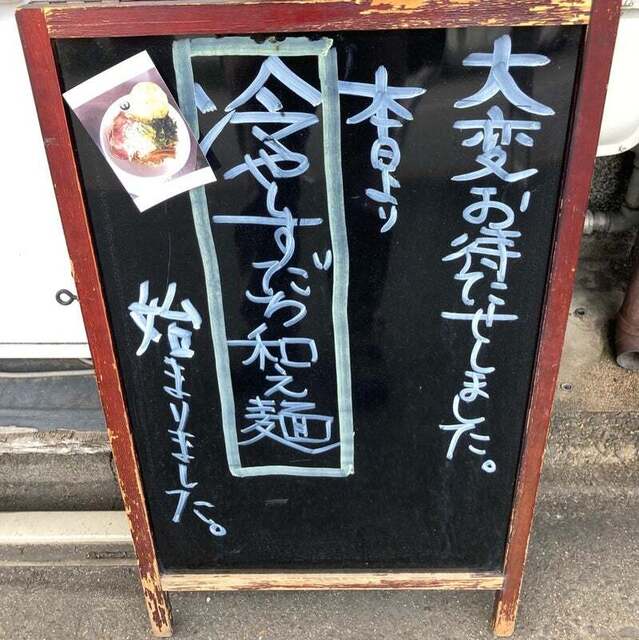 大変お待たせしました。
本日より
冷やしすごろ和え麺
始まりました。